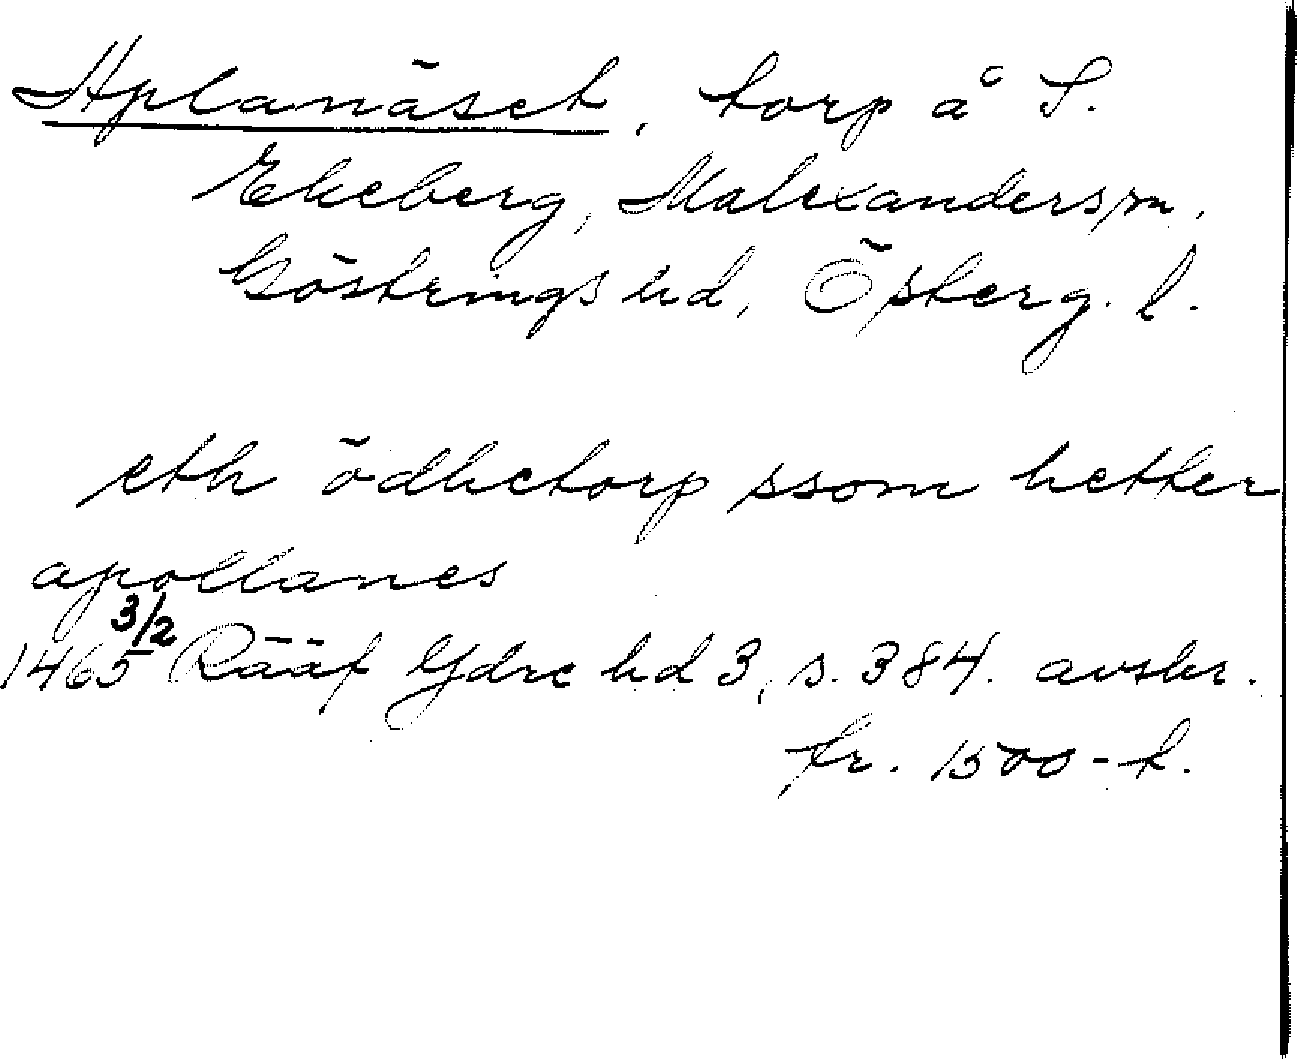 Aplanäset, torp å S.
Ekeberg, Malexanders sn,
Göstrings hd, Österg. l.
eth ödhetorp ssom hetter
apollanes
1465 3/2 Rääf Ydre hd 3, s. 384. avskr.
fr. 1500-t.